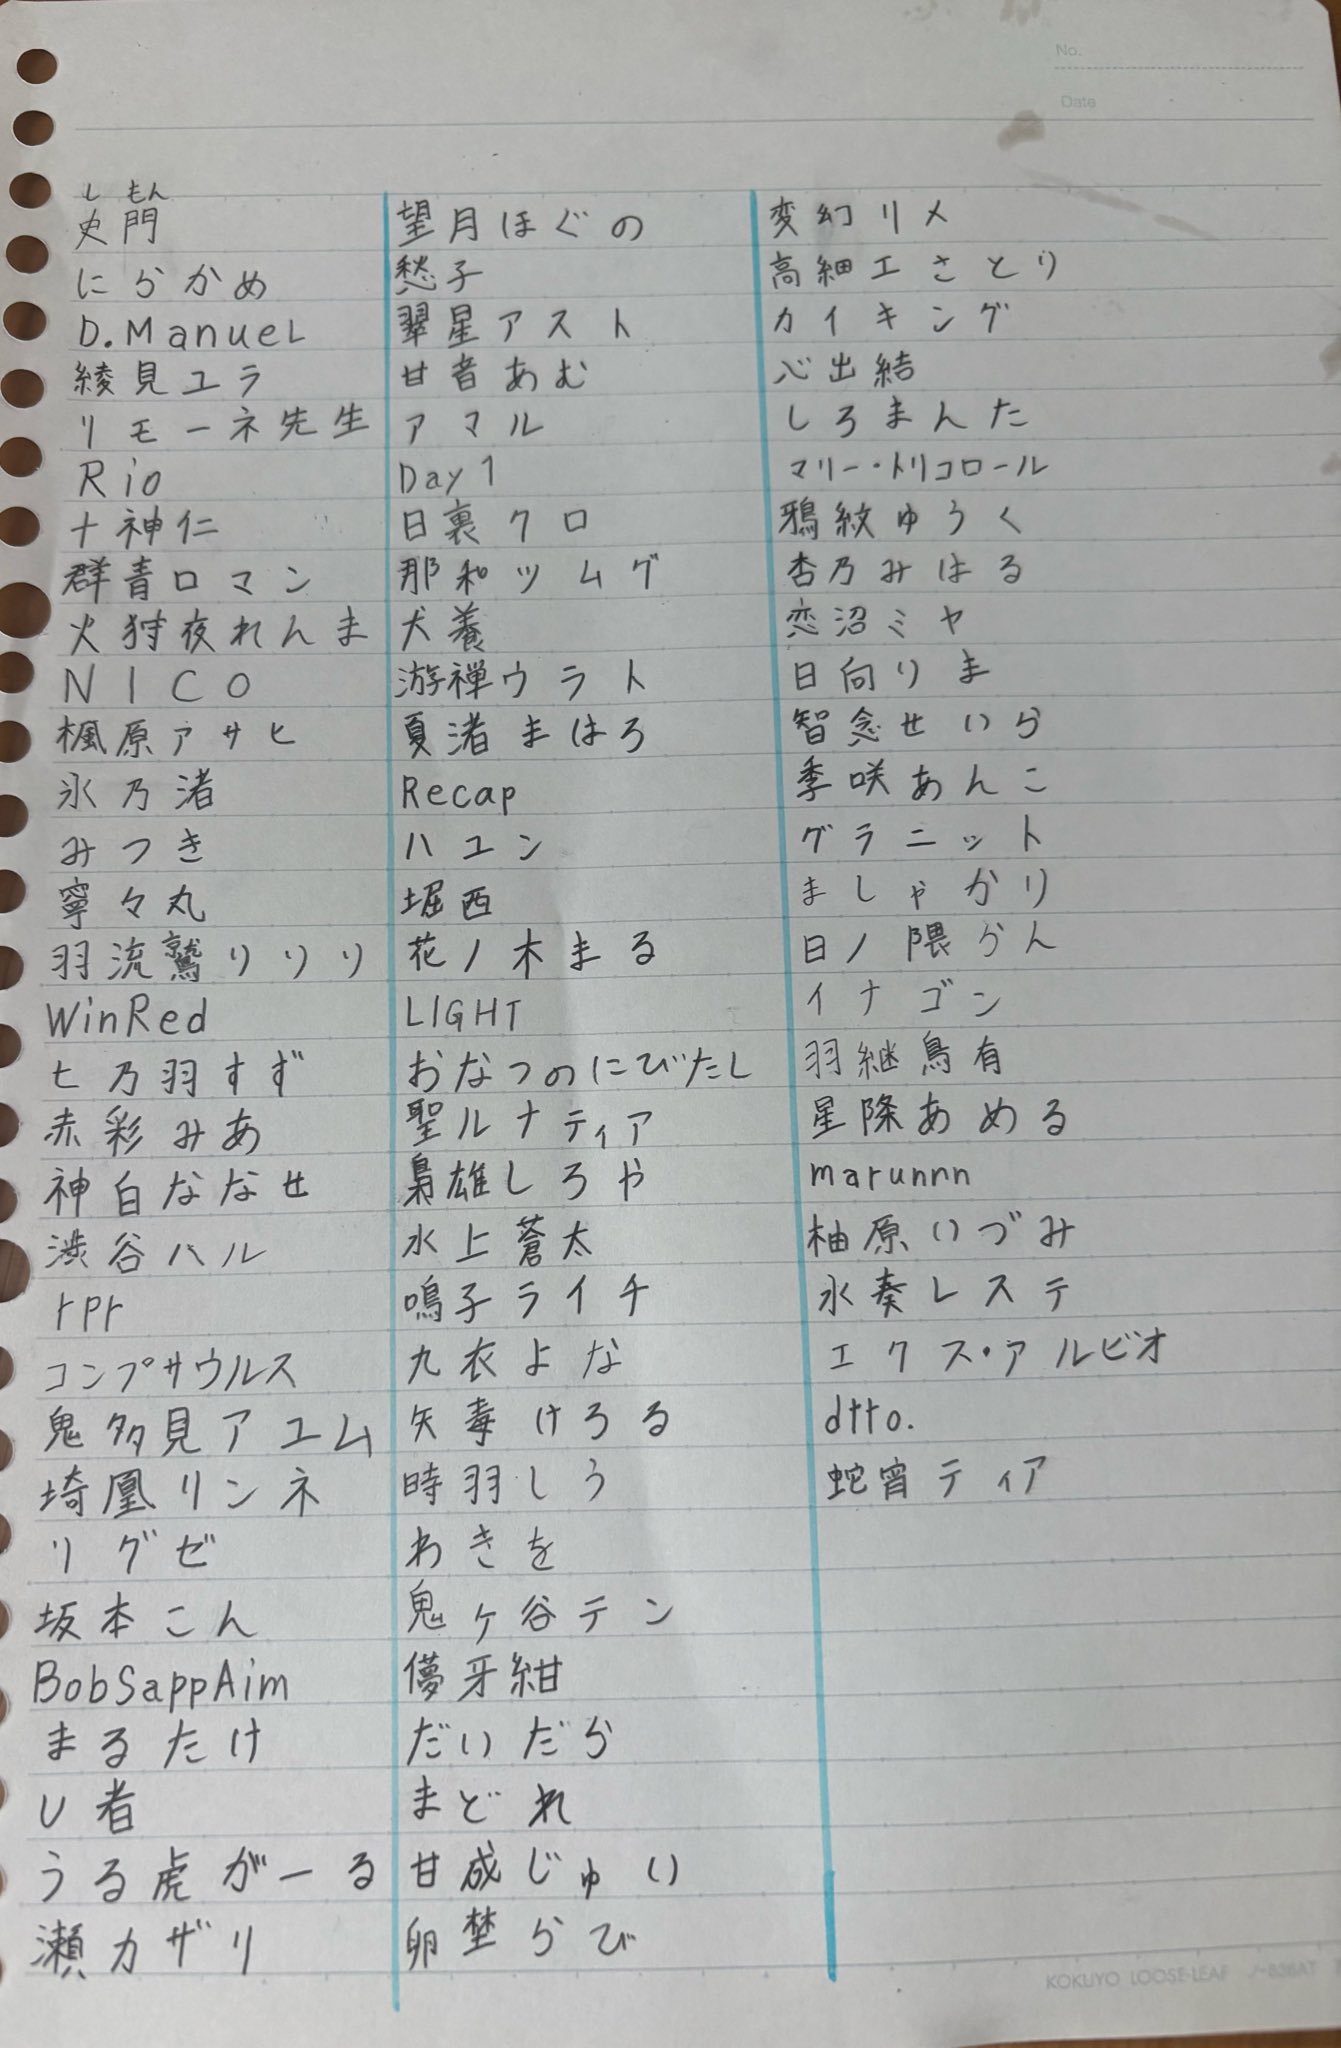 No.
Date
しもん
史門
にらかめ
D.Manuel
綾見ユラ
リモーネ先生
Rio
十神仁
群青ロマン
火狩夜れんま
NICO
楓原アサヒ
氷乃渚
みつき
寧々丸
羽流鷲りりり
WinRed
七乃羽すず
赤彩みあ
神白ななせ
渋谷ハル
rpr
コンプサウルス
鬼多見アユム
埼凰リンネ
リグゼ
坂本こん
BobSappAim
まるたけ
U者
うる虎がーる
瀬カザリ
望月ほぐの
愁子
翠星アスト
甘音あむ
アマル
Day1
日裏クロ
那和ツムグ
犬養
游禅ウラト
夏渚まはろ
Recap
ハユン
堀西
花ノ木まる
LIGHT
おなつのにびたし
聖ルナティア
梟雄しろや
水上蒼太
鳴子ライチ
九衣よな
矢毒けろる
時羽しう
わきを
鬼ヶ谷テン
儚牙紺
だいだら
まどれ
甘成じゅい
卵埜らび
変幻リメ
高細工さとり
カイキング
心出結
しろまんた
マリー・トリコロール
鴉紋ゆうく
杏乃みはる
恋沼ミヤ
日向りま
智念せいら
季咲あんこ
グラニット
ましゃかり
日ノ隈らん
イナゴン
羽継烏有
星降あめる
marunnn
柚原いづみ
氷奏レステ
エクス・アルビオ
dtto.
蛇宵ティア
KOKUYO LOOSE-LEAF ノ-836AT